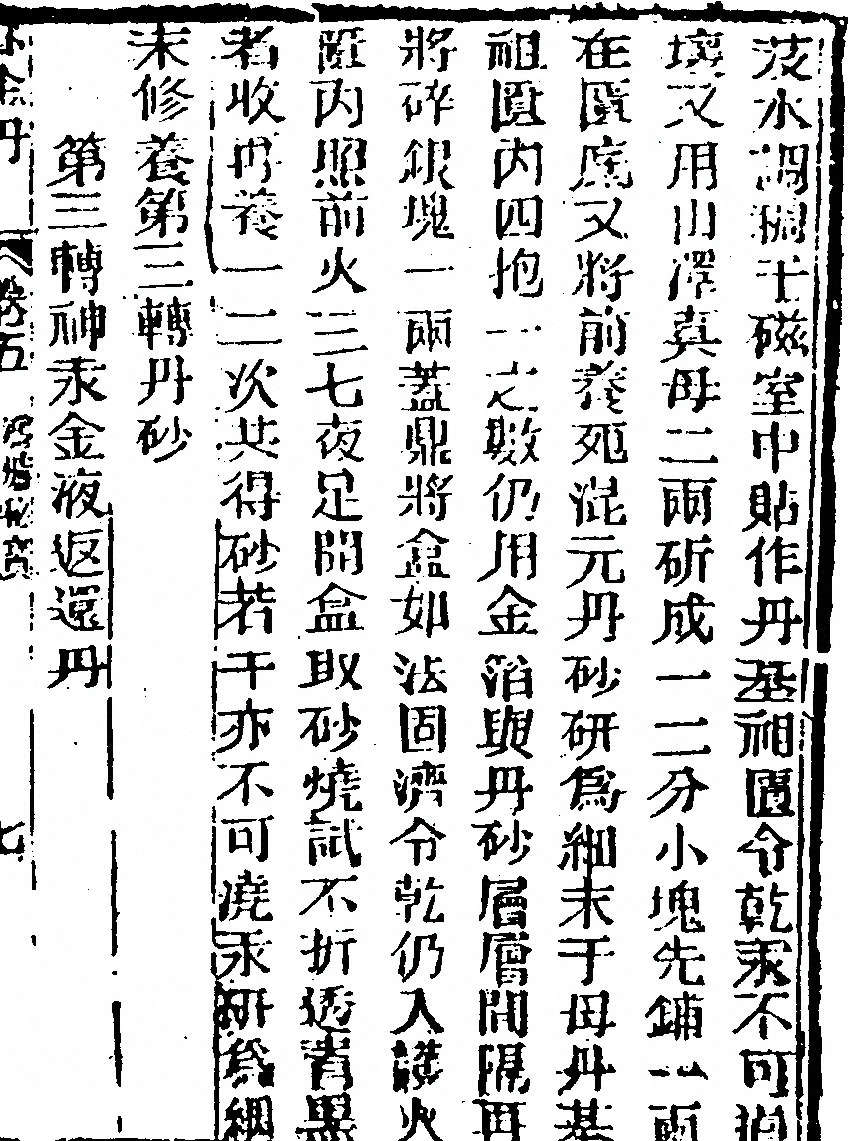 芨水調稠于磁室中貼作丹基祖匱令乾汞不可損
壞又用山澤真母二兩斫成一二分小塊先鋪一兩
在匱底又將前養死混元丹砂研為細末于母丹基
祖匱內四抱一之數仍用金箔與丹砂層層間隔再
將碎銀塊一兩蓋鼎將盒如法固濟令乾仍入護火
匱內照前火三七夜足開盒取砂燒試不折透青黑
者收再養一二次共得砂若干亦不可澆汞研為細
末修養第三轉丹砂
第三轉神汞金液返還丹
卷五
七